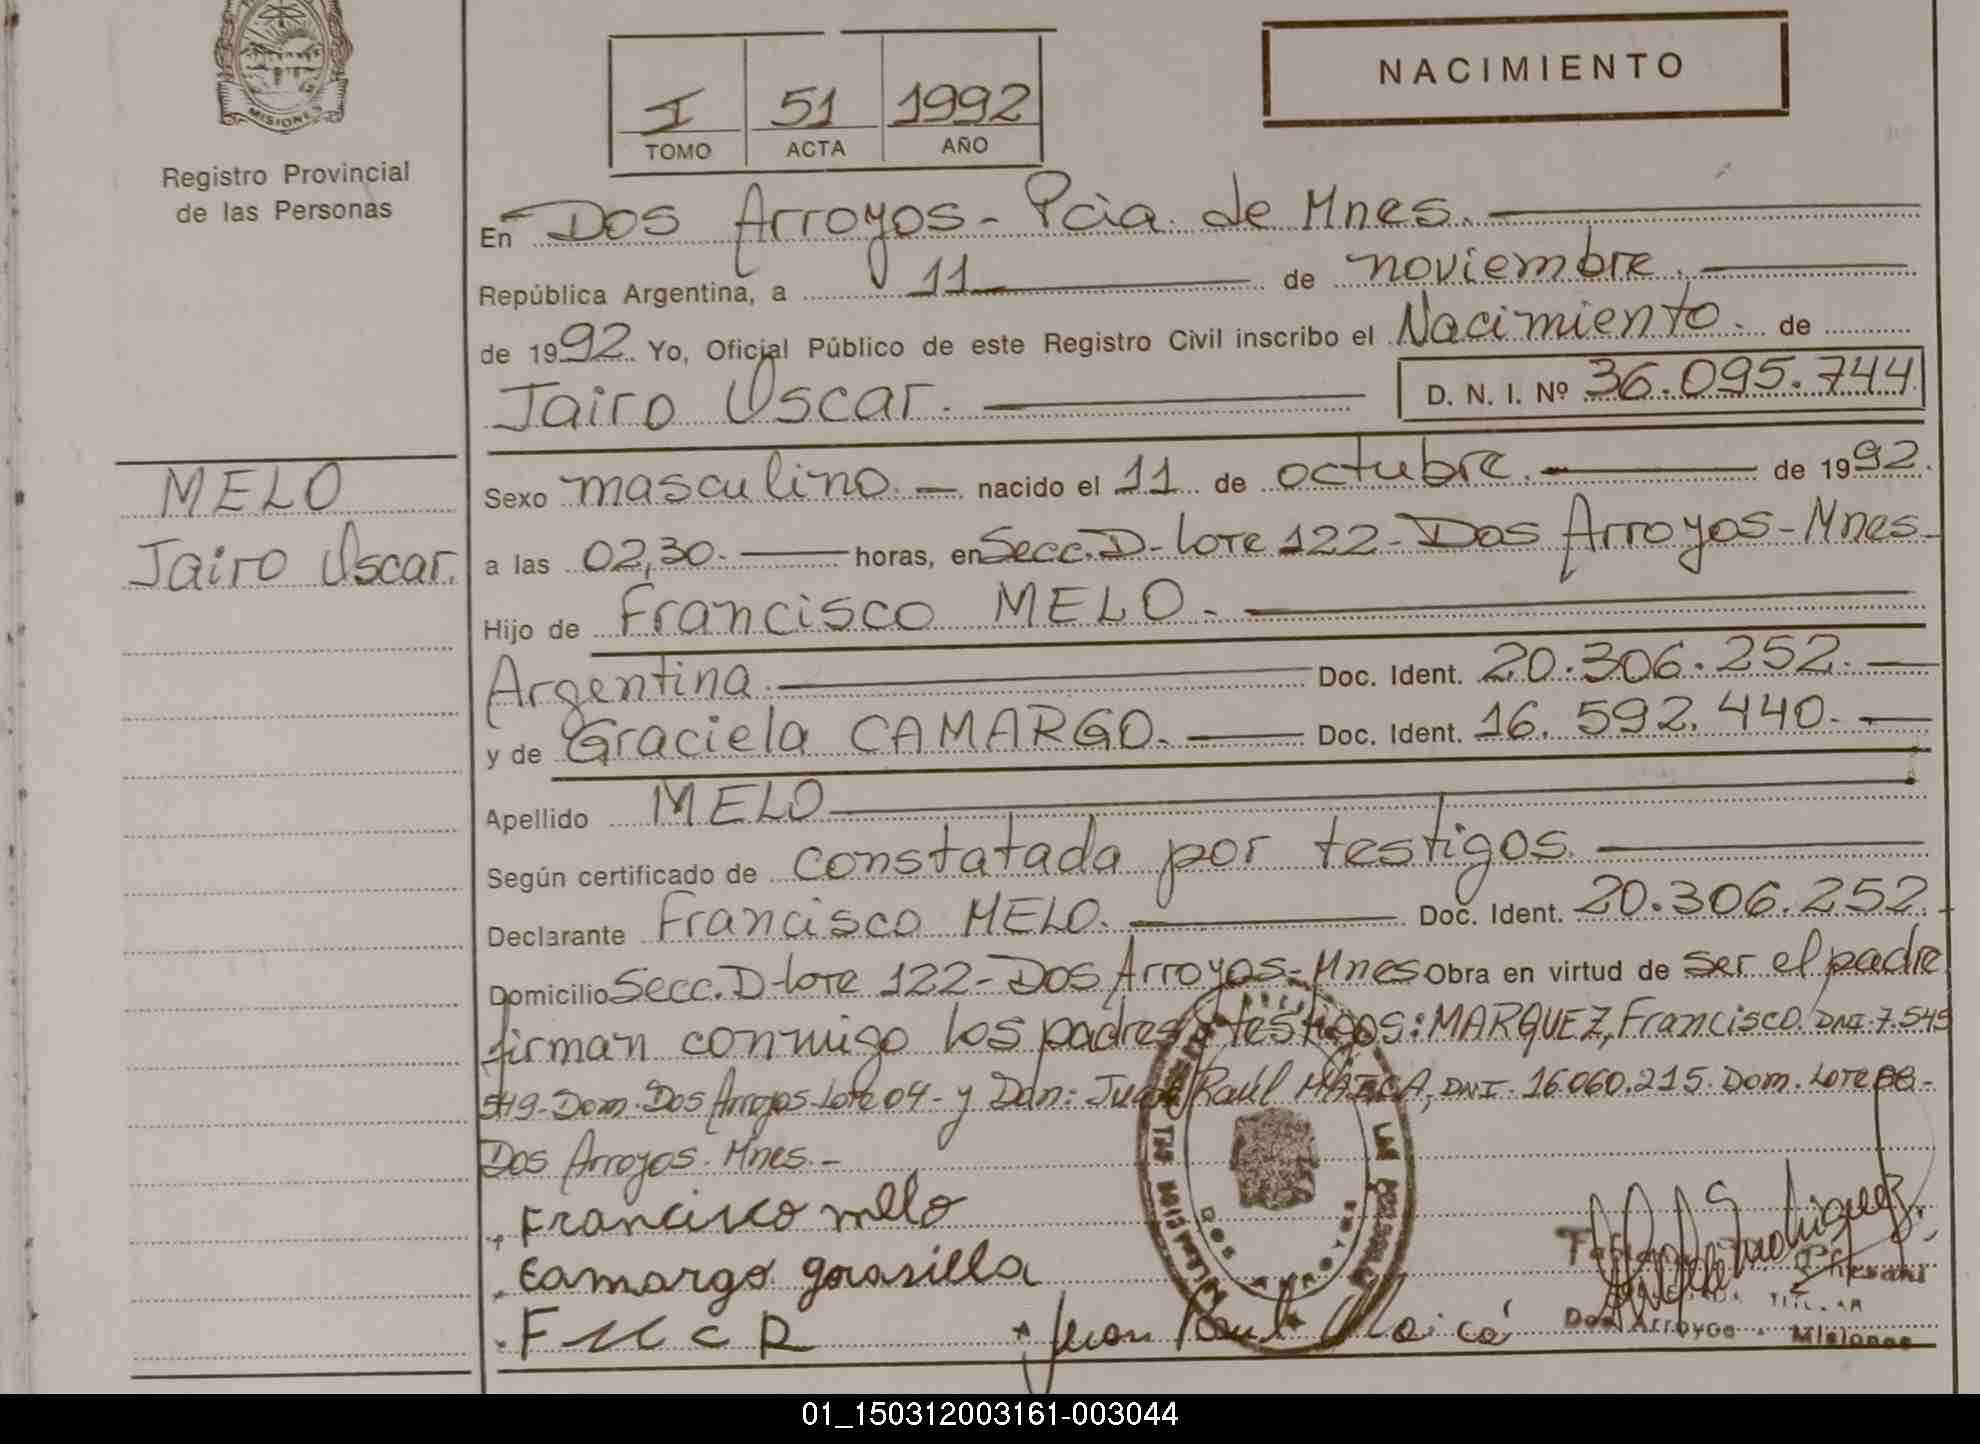 MISIONES
Registro Provincial
de las Personas
I 51 1992
TOMO ACTA AÑO
NACIMIENTO
En Dos Arroyos - Pcia. de Mnes.
República Argentina, a 11 de noviembre.
de 1992. Yo, Oficial Público de este Registro Civil inscribo el Nacimiento. de
Jairo Oscar. D. N. I. Nº 36.095.744
MELO
Jairo Oscar.
Sexo masculino. nacido el 11 de octubre. de 1992.
a las 02,30. horas, en Secc. D- Lote 122- Dos Arroyos- Mnes-
Hijo de Francisco MELO.
Argentina. Doc. Ident. 20.306.252.
y de Graciela CAMARGO. Doc. Ident. 16.592.440.
Apellido MELO
Según certificado de constatada por testigos.
Declarante Francisco MELO. Doc. Ident. 20.306.252.
Domicilio Secc. D- Lote 122- Dos Arroyos- Mnes Obra en virtud de ser el padre
firman conmigo los padres y testigos: MARQUEZ, Francisco. DNI. 7.545
549- Dom. Dos Arroyos- Lote 04- y Don: Juan Raúl MAICA, DNI. 16.060.215. Dom. Lote
Dos Arroyos. Mnes.-
Francisco mello
Camargo grasilla
F M C R
Juan Raul Maicá
DOS ARROYOS
LAS
TITULAR
Dos Arroyos - Misiones
01_150312003161-003044